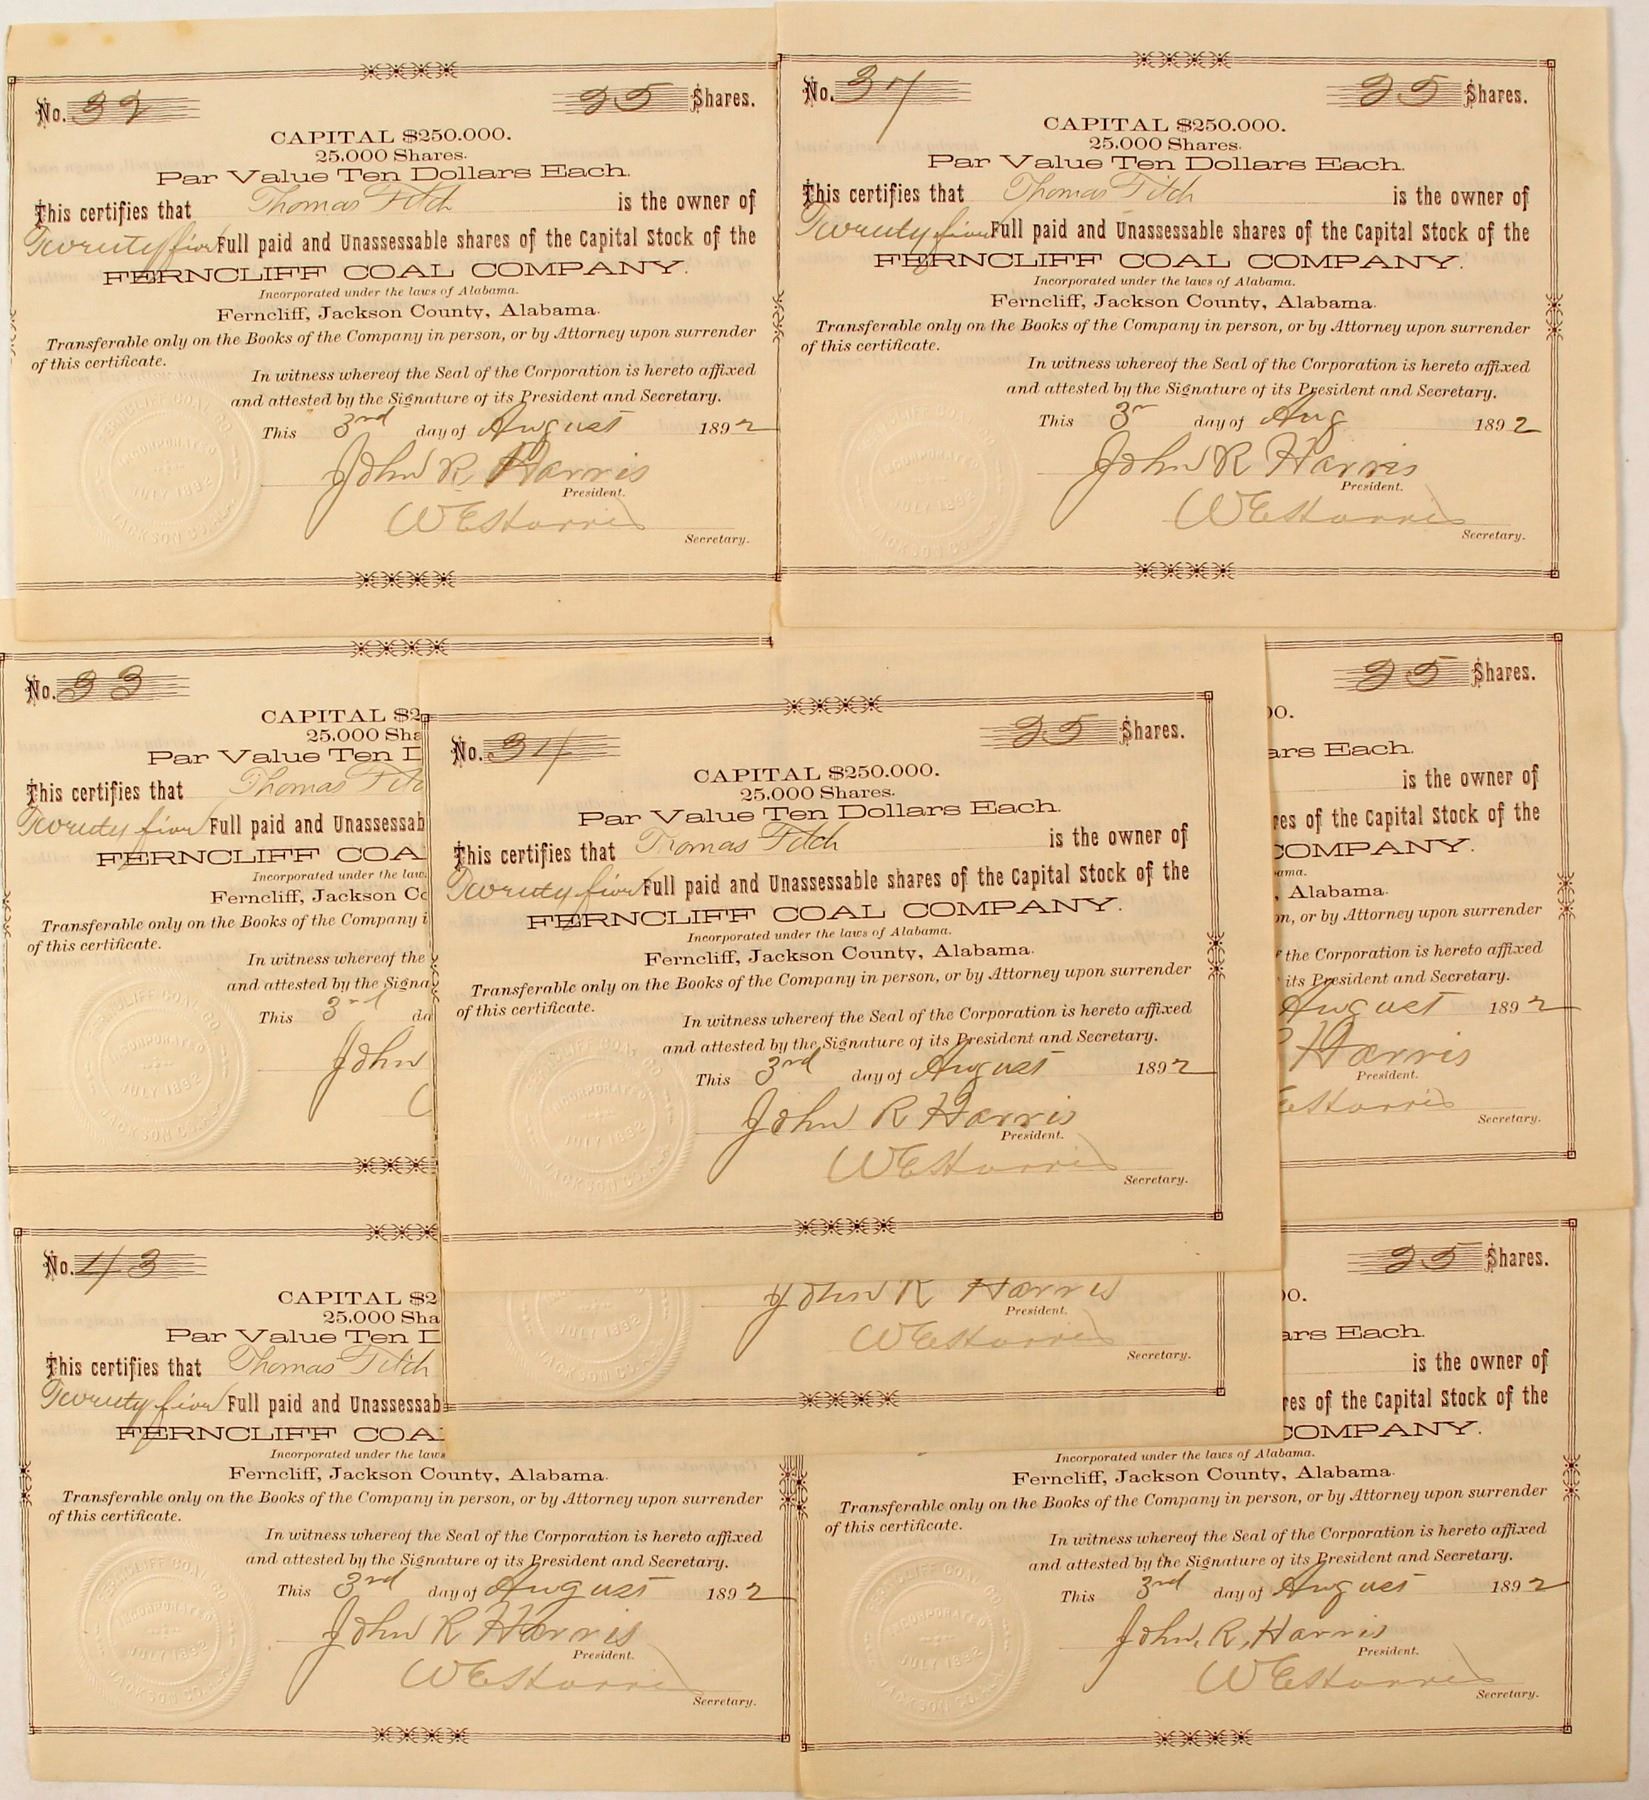 No. 32 25 Shares.
CAPITAL $250.000.
25.000 Shares.
Par Value Ten Dollars Each.
This certifies that Thomas Fitch is the owner of
Twenty five Full paid and Unassessable shares of the Capital Stock of the
FERNCLIFF COAL COMPANY.
Incorporated under the laws of Alabama.
Ferncliff, Jackson County, Alabama.
Transferable only on the Books of the Company in person, or by Attorney upon surrender
of this certificate.
In witness whereof the Seal of the Corporation is hereto affixed
and attested by the Signature of its President and Secretary.
This 3rd day of August 1892
John R Harris
President.
W E Harris
Secretary.
FERNCLIFF COAL CO
INCORPORATED
JULY 1892
JACKSON CO. ALA
No. 37 25 Shares.
CAPITAL $250.000.
25.000 Shares.
Par Value Ten Dollars Each.
This certifies that Thomas Fitch is the owner of
Twenty five Full paid and Unassessable shares of the Capital Stock of the
FERNCLIFF COAL COMPANY.
Incorporated under the laws of Alabama.
Ferncliff, Jackson County, Alabama.
Transferable only on the Books of the Company in person, or by Attorney upon surrender
of this certificate.
In witness whereof the Seal of the Corporation is hereto affixed
and attested by the Signature of its President and Secretary.
This 3r day of Aug 1892
John R Harris
President.
W E Harris
Secretary.
FERNCLIFF COAL CO
INCORPORATED
JULY 1892
JACKSON CO. ALA
No. 33
CAPITAL $2
25.000 Sha
Par Value Ten D
This certifies that Thomas Fitc
Twenty five Full paid and Unassessab
FERNCLIFF COA
Incorporated under the law
Ferncliff, Jackson Co
Transferable only on the Books of the Company i
of this certificate.
In witness whereof the
and attested by the Signa
This 3rd da
John
FERNCLIFF COAL CO
INCORPORATED
JULY 1892
JACKSON CO. ALA
No. 34 25 Shares.
CAPITAL $250.000.
25.000 Shares.
Par Value Ten Dollars Each.
This certifies that Thomas Fitch is the owner of
Twenty five Full paid and Unassessable shares of the Capital Stock of the
FERNCLIFF COAL COMPANY.
Incorporated under the laws of Alabama.
Ferncliff, Jackson County, Alabama.
Transferable only on the Books of the Company in person, or by Attorney upon surrender
of this certificate.
In witness whereof the Seal of the Corporation is hereto affixed
and attested by the Signature of its President and Secretary.
This 3rd day of August 1892
John R Harris
President.
W E Harris
Secretary.
FERNCLIFF COAL CO
INCORPORATED
JULY 1892
JACKSON CO. ALA
25 Shares.
00.
ars Each.
is the owner of
res of the Capital Stock of the
COMPANY.
ama.
, Alabama.
n, or by Attorney upon surrender
f the Corporation is hereto affixed
its President and Secretary.
August 1892
Harris
President.
E Harris
Secretary.
John R Harris
President.
W E Harris
Secretary.
JULY 1892
JACKSON CO. ALA
No. 43
CAPITAL $2
25.000 Sha
Par Value Ten D
This certifies that Thomas Fitch
Twenty five Full paid and Unassessab
FERNCLIFF COA
Incorporated under the laws
Ferncliff, Jackson County, Alabama.
Transferable only on the Books of the Company in person, or by Attorney upon surrender
of this certificate.
In witness whereof the Seal of the Corporation is hereto affixed
and attested by the Signature of its President and Secretary.
This 3rd day of August 1892
John R Harris
President.
W E Harris
Secretary.
FERNCLIFF COAL CO
INCORPORATED
JULY 1892
JACKSON CO. ALA
25 Shares.
00.
ars Each.
is the owner of
res of the Capital Stock of the
COMPANY.
Incorporated under the laws of Alabama.
Ferncliff, Jackson County, Alabama.
Transferable only on the Books of the Company in person, or by Attorney upon surrender
of this certificate.
In witness whereof the Seal of the Corporation is hereto affixed
and attested by the Signature of its President and Secretary.
This 3rd day of August 1892
John, R, Harris
President.
W E Harris
Secretary.
FERNCLIFF COAL CO
INCORPORATED
JULY 1892
JACKSON CO. ALA